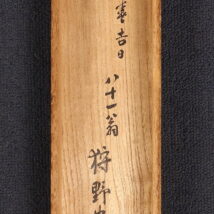 春吉日
八十一翁
狩野